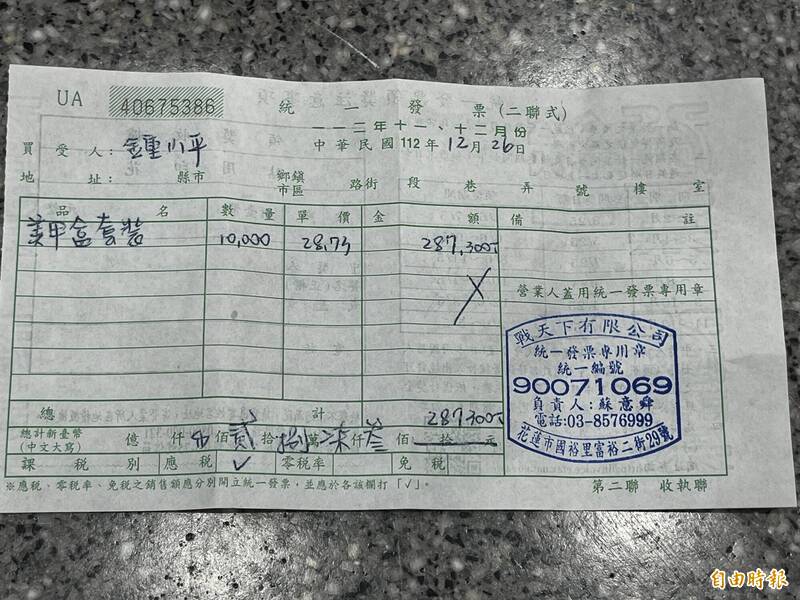 UA 40675386
統一發票(二聯式)
一一二年十一、十二月份
買受人: 鍾小平 中華民國112年12月26日
地址: 縣市 鄉鎮市區 路街 段 巷 弄 號 樓 室
品名 數量 單價 金額 備註
美甲盒套裝 10,000 28.73 287,300
營業人蓋用統一發票專用章
戰天下有限公司
統一發票專用章
統一編號
90071069
負責人:蘇意舜
電話:03-8576999
花蓮市國裕里富裕二街29號
總計 287300
總計新臺幣(中文大寫) 億 仟 佰 貳 拾 捌 萬 柒 仟 叁 佰 拾 元
課稅別 應稅 ✓ 零稅率 免稅
※應稅、零稅率、免稅之銷售額應分別開立統一發票,並應於各該欄打「√」。 第二聯 收執聯
自由時報